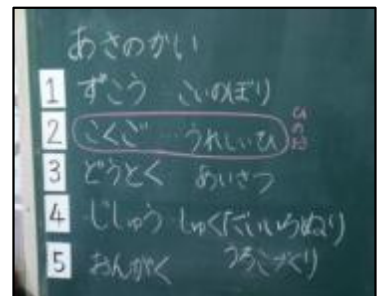 あさのかい
1 ずこう こいのぼり
2 こくご… うれしいひ
3 どうとく あいさつ
4 じしゅう しゅくだい いろぬり
5 おんがく うろこづくり